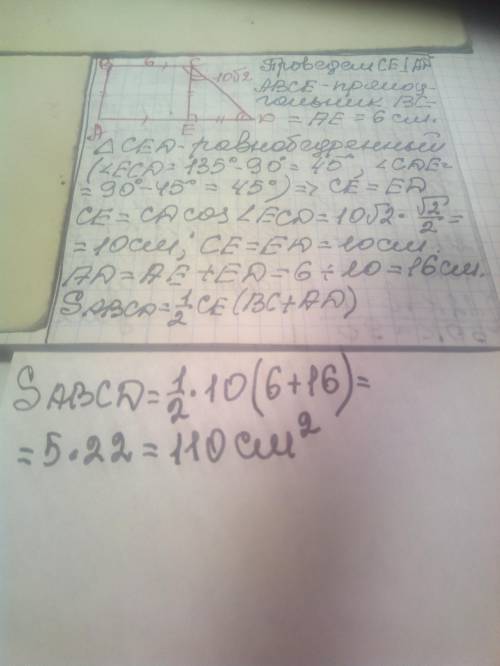 B 6 C
10√2
A E D
Проведем CE⊥AD
ABCE - прямоу-
гольник BC=
= AE = 6 см.
△CED - равнобедренный
(∠ECD = 135° - 90° = 45°, ∠CDE =
= 90° - 45° = 45°) => CE = ED
CE = CD cos∠ECD = 10√2 · √2/2 =
= 10 см; CE = ED = 10 см.
AD = AE + ED = 6 + 10 = 16 см.
S ABCD = 1/2 CE (BC + AD)
S ABCD = 1/2 · 10 (6 + 16) =
= 5 · 22 = 110 см²